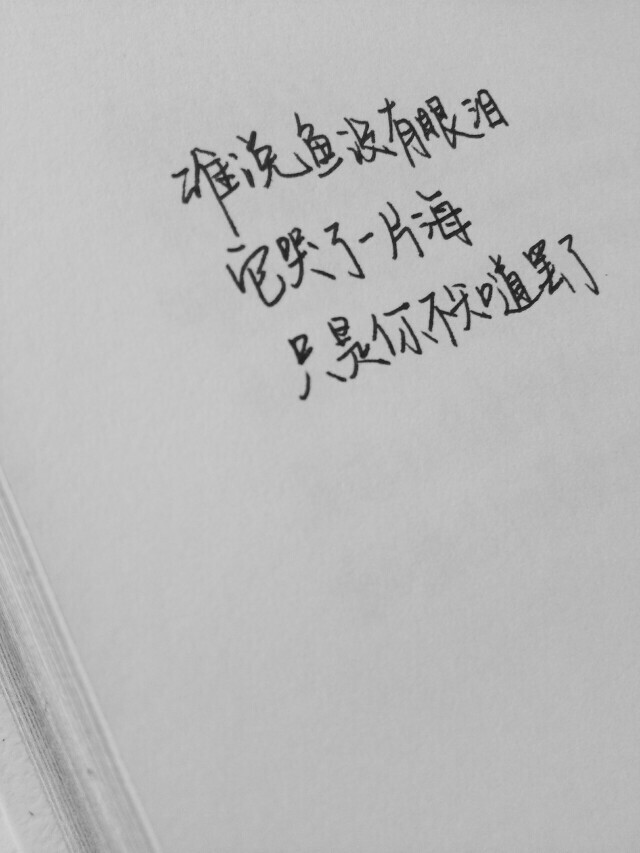 谁说鱼没有眼泪
它哭了一片海
只是你不知道罢了